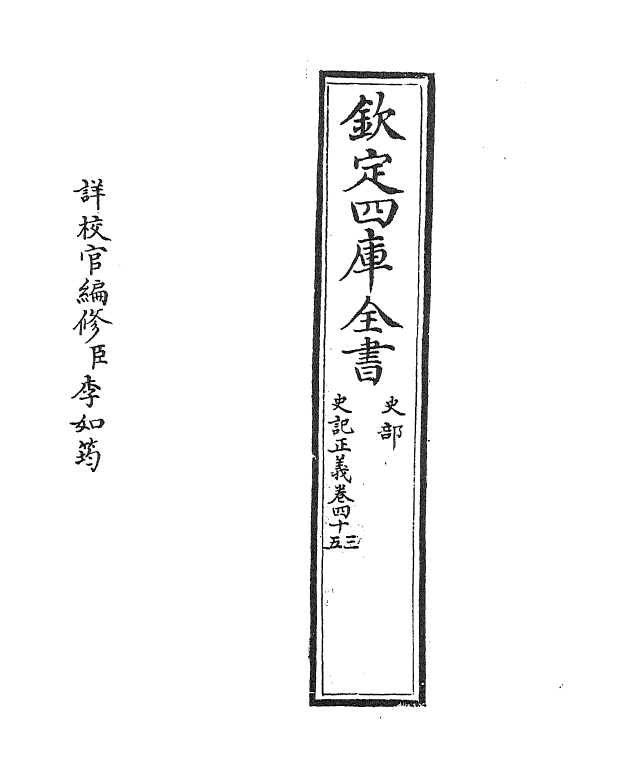 欽定四庫全書
史部
史記正義卷四十三五
詳校官編修臣李如筠